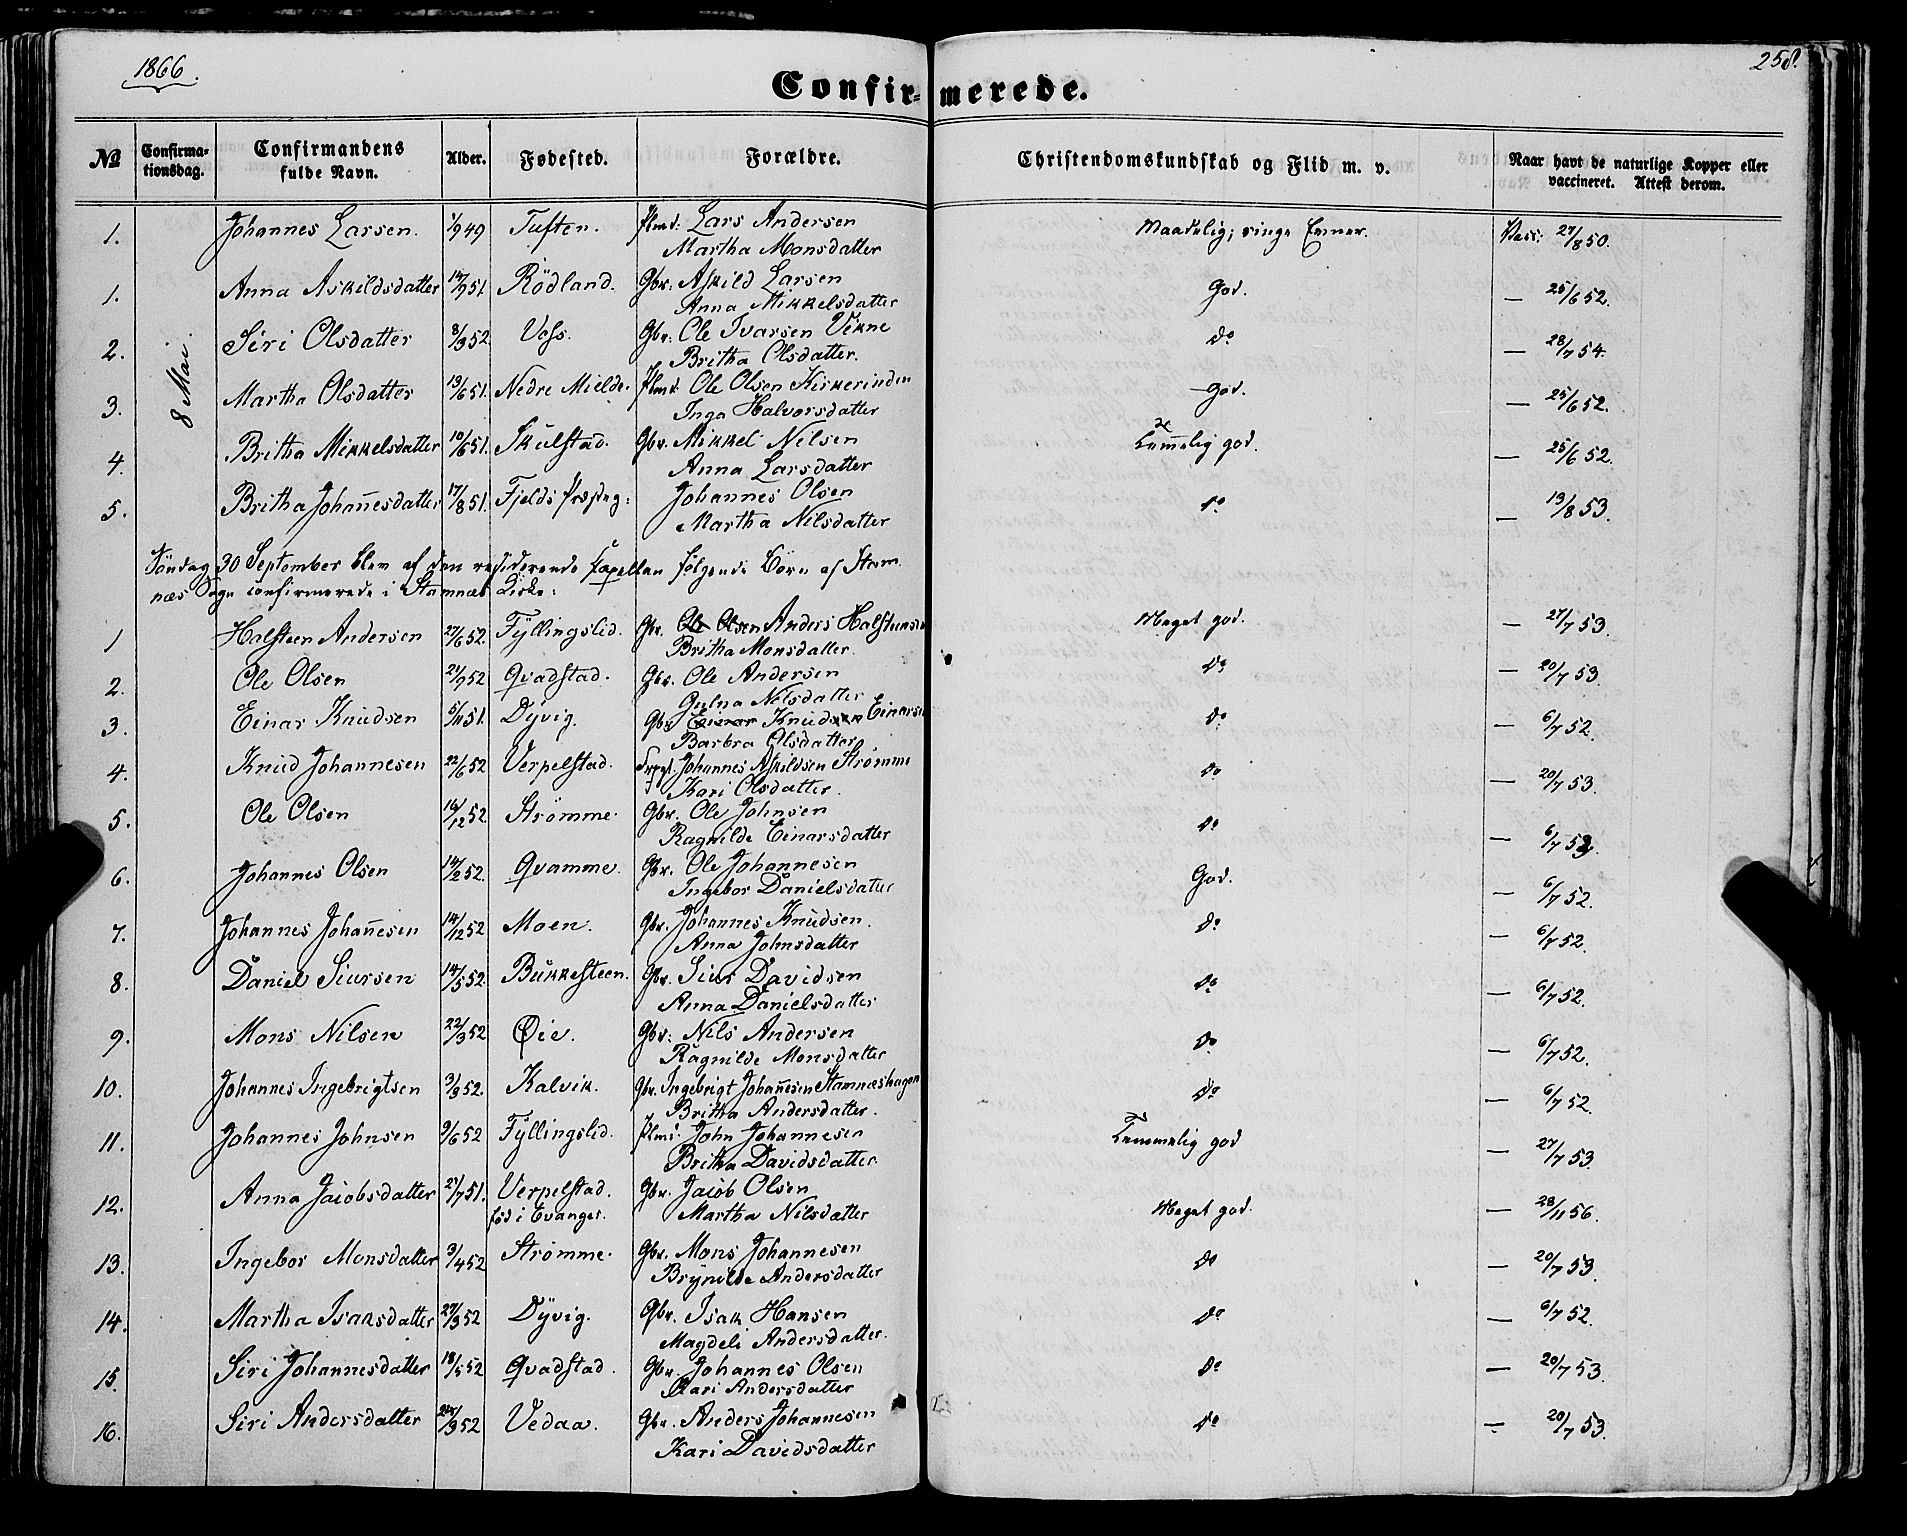 1866.
258.
Confirmerede.
№ Confirmationsdag. Confirmandens fulde Navn. Alder. Fødested. Forældre. Christendomskundskab og Flid m. v. Naar havt de naturlige Kopper eller vaccineret. Attest derom.
8 Mai
1. Johannes Larsen. 1/9 49 Tuften. Plmd: Lars Andersen Maadelig; ringe Evner. Vacc: 27/8 50.
Martha Monsdatter
1. Anna Askildsdatter 14/9 51. Rödland. Gbr: Askild Larsen God. — 25/6 52.
Anna Mikkelsdatter
2. Siri Olsdatter 8/3 52 Voss. Gbr: Ole Ivarsen Vikne do — 28/7 54.
Britha Olsdatter.
3. Martha Olsdatter 13/6 51. Nedre Mielde. Plmd: Ole Olsen Kirkerinden God. — 25/6 52.
Inga Halvorsdatter
4. Britha Mikkelsdatter 10/6 51. Skulstad. Gbr. Mikkel Nilsen Temmelig god. — 25/6 52.
Anna Larsdatter
5. Britha Johannesdatter 17/8 51. Fjelds Præsteg: Johannes Olsen do — 13/8 53.
Martha Nilsdatter
Söndag 30 September blev af den residerende Capellan følgende Börn af Stam-
næs Sogn confirmerede i Stamnæs Kirke:
1 Halsteen Andersen 27/6 52. Fyllingslid. Gbr. Ole Olsen Anders Halsteensen Meget god. — 27/7 53.
Britha Monsdatter.
2. Ole Olsen 21/9 52 Qvadstad. Gbr. Ole Andersen do — 20/7 53.
Gulna Nilsdatter
3. Einar Knudsen 5/11 51. Dyvig. Gbr Einar Knudsen Einarsen do — 6/7 52.
Barbra Olsdatter
4. Knud Johannesen 22/6 52 Verpelstad. Johannes Askildsen Strømme do — 20/7 53.
Kari Olsdatter.
5. Ole Olsen 16/12 52 Strømme. Gbr. Ole Johnsen do — 6/7 53.
Ragnilde Einarsdatter
6. Johannes Olsen 14/2 52. Qvamme. Gbr. Ole Johannesen God. — 6/7 52.
Ingebor Danielsdatter
7. Johannes Johannesen 14/12 52 Moen. Gbr. Johannes Knudsen. do — 6/7 52.
Anna Johnsdatter
8. Daniel Siursen 14/5 52. Bukkesteen. Gbr. Siur Davidsen do — 6/7 52.
Anna Danielsdatter
9. Mons Nilsen 22/3 52 Øie. Gbr. Nils Andersen do — 6/7 52.
Ragnilde Monsdatter
10. Johannes Ingebrigtsen 3/3 52. Kalvik. Gbr. Ingebrigt Johannesen Stamnæshagen do — 6/7 52.
Britha Andersdatter.
11. Johannes Johnsen 9/6 52 Fyllingslid. Plmd. John Johannesen Temmelig god — 27/7 53.
Britha Davidsdatter
12. Anna Jacobsdatter 21/7 51. Verpelstad. Gbr. Jacob Olsen Meget god. — 28/11 56.
föd i Evanger. Martha Nilsdatter
13. Ingebor Monsdatter 3/4 52 Strømme. Gbr. Mons Johannesen do — 20/7 53.
Brynilde Andersdatter
14. Martha Isaksdatter 27/3 52 Dyvig. Gbr. Isak Hansen do — 6/7 52.
Magdeli Andersdatter.
15. Siri Johannesdatter 18/5 52 Qvadstad. Gbr. Johannes Olsen do — 20/7 53.
Kari Andersdatter
16. Siri Andersdatter 24/3 52 Vedaa. Gbr. Anders Johannesen do — 20/7 53.
Kari Davidsdatter